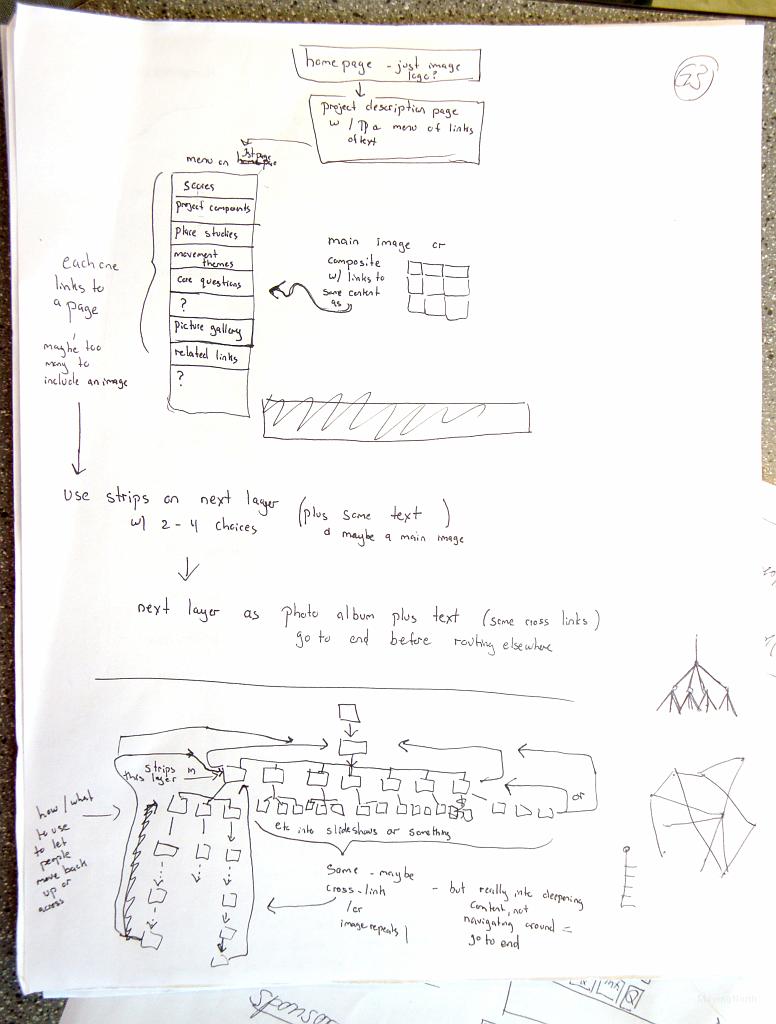 home page - just image
logo?
63
project description page
w/ a menu of links
of text
menu on 1st page
scores
project components
place studies
movement
themes
core questions
?
picture gallery
related links
?
each one
links to
a page
maybe too
many to
include an image
main image or
composite
w/ links to
same content
as
use strips on next layer
w/ 2-4 choices
(plus some text)
& maybe a main image
next layer as photo album plus text (some cross links)
go to end before routing elsewhere
strips in
this layer
or
how/what
to use
to let
people
move back
up or
across
etc into slideshows or something
some - maybe
cross-link
/or
image repeats
- but really into deepening
content, not
navigating around =
go to end